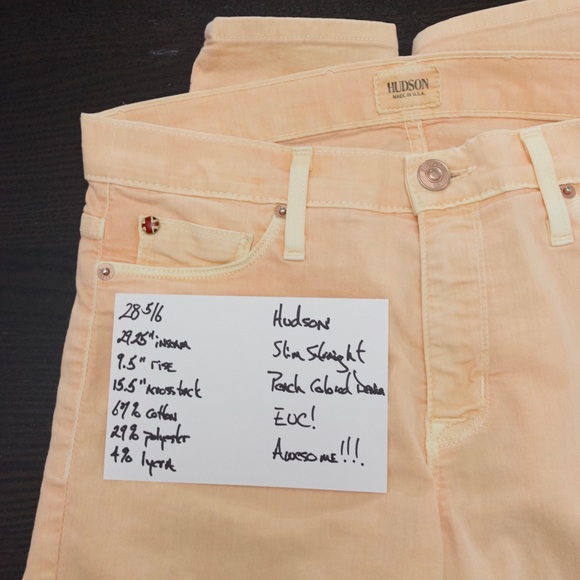 HUDSON
MADE IN U.S.A.
28 5/6
29.25" inseam
9.5" rise
15.5" across back
67% cotton
29% polyester
4% lycra
Hudson
Slim Straight
Peach Colored Denim
EUC!
Awesome!!!.